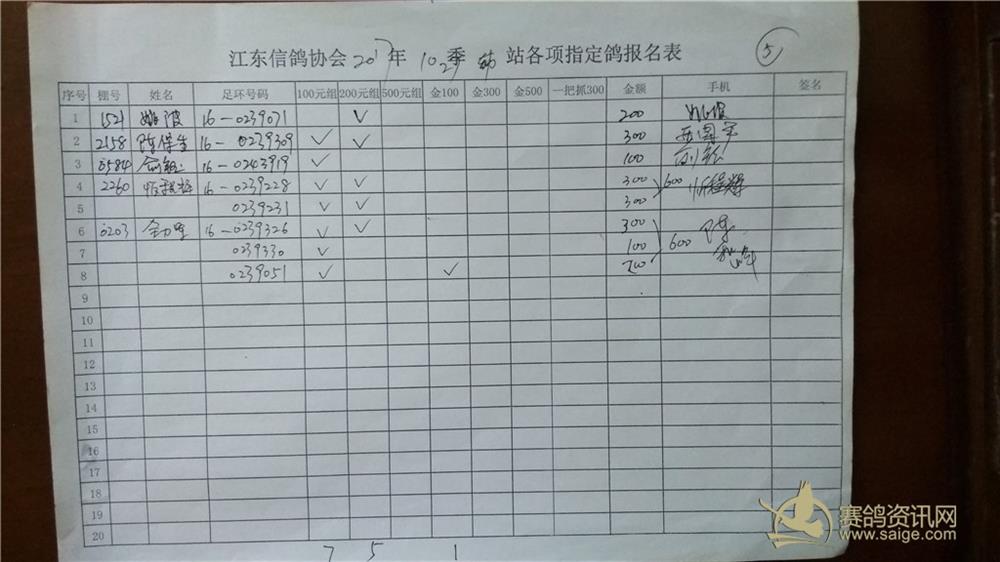 江东信鸽协会2017年 站各项指定鸽报名表
5
序号 棚号 姓名 足环号码 100元组 200元组 500元组 金100 金300 金500 一把抓300 金额 手机 签名
1 1521 16-0239071 ✓ 200
2 2158 陈保生 16-0239309 ✓ ✓ 300
3 0584 16-0243919 ✓ 100
4 2260 16-0239228 ✓ ✓ 300 600
5 0239231 ✓ ✓ 300
6 0203 16-0239326 ✓ ✓ 300
7 0239330 ✓ 100 600
8 0239051 ✓ ✓ 200
9
10
11
12
13
14
15
16
17
18
19
20
7 5 1
赛鸽资讯网
www.saige.com